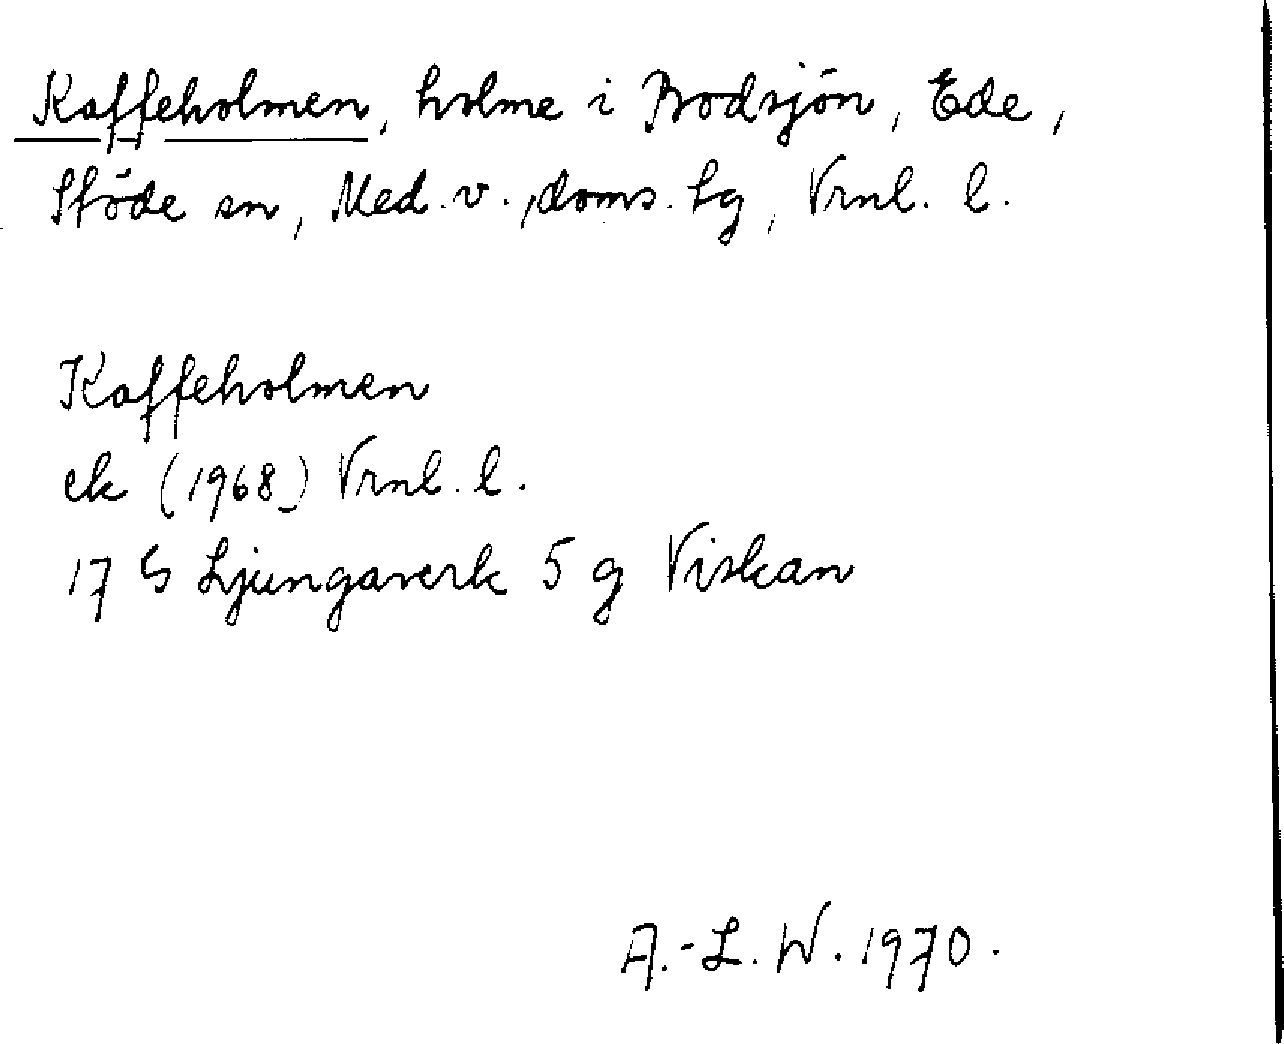 Kaffeholmen, holme i Bodsjön, Ede,
Stöde sn, Med. v., doms. lg, Vrnl. l.
Kaffeholmen
ek (1968) Vrnl. l.
17 G Ljungaverk 5 g Viskan
A.-L. W. 1970.